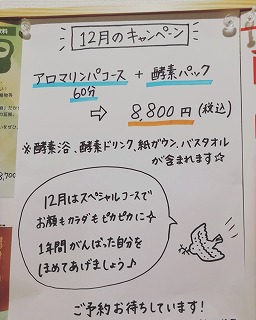 12月のキャンペーン
アロマリンパコース + 酵素パック
60分
⇨ 8,800円(税込)
※酵素浴、酵素ドリンク、紙ガウン、バスタオル
が含まれます☆
12月はスペシャルコースで
お顔もカラダもピカピカに✧
1年間がんばった自分を
ほめてあげましょう♪
ご予約お待ちしています!